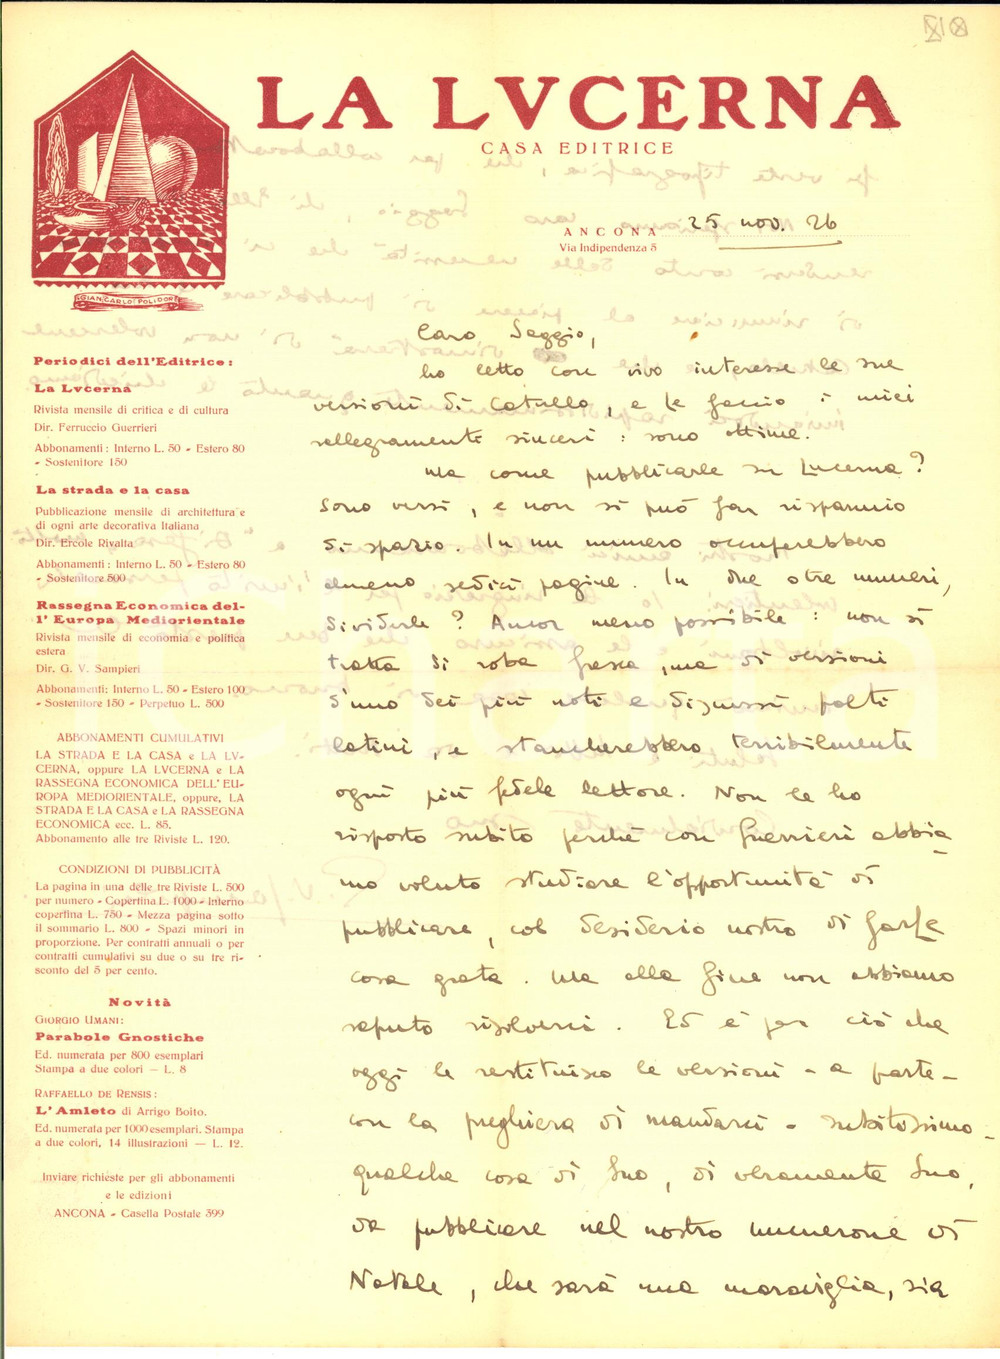 LA LVCERNA
CASA EDITRICE
ANCONA 25 nov. 26
Via Indipendenza 5
GIAN CARLO POLIDORI
Periodici dell'Editrice:
La Lvcerna
Rivista mensile di critica e di cultura
Dir. Ferruccio Guerrieri
Abbonamenti: Interno L. 50 - Estero 80
- Sostenitore 150
La strada e la casa
Pubblicazione mensile di architettura e
di ogni arte decorativa Italiana
Dir. Ercole Rivalta
Abbonamenti: Interno L. 50 - Estero 80
- Sostenitore 500
Rassegna Economica del-
l'Europa Mediorientale
Rivista mensile di economia e politica
estera
Dir. G. V. Sampieri
Abbonamenti: Interno L. 50 - Estero 100
- Sostenitore 150 - Perpetuo L. 500
ABBONAMENTI CUMULATIVI
LA STRADA E LA CASA e LA LV-
CERNA, oppure LA LVCERNA e LA
RASSEGNA ECONOMICA DELL'EU-
ROPA MEDIORIENTALE, oppure, LA
STRADA E LA CASA e LA RASSEGNA
ECONOMICA ecc. L. 85.
Abbonamento alle tre Riviste L. 120.
CONDIZIONI DI PUBBLICITÀ
La pagina in una delle tre Riviste L. 500
per numero - Copertina L. 1000 - Interno
copertina L. 750 - Mezza pagina sotto
il sommario L. 800 - Spazi minori in
proporzione. Per contratti annuali o per
contratti cumulativi su due o su tre ri-
sconto del 5 per cento.
Novità
GIORGIO UMANI:
Parabole Gnostiche
Ed. numerata per 800 esemplari
Stampa a due colori — L. 8
RAFFAELLO DE RENSIS:
L'Amleto di Arrigo Boito.
Ed. numerata per 1000 esemplari. Stampa
a due colori, 14 illustrazioni — L. 12.
Inviare richieste per gli abbonamenti
e le edizioni
ANCONA - Casella Postale 399
Caro Saggio,
ho letto con vivo interesse le sue
versioni di Catullo, e Le faccio i miei
rallegramenti sinceri: sono ottime.
Ma come pubblicarle su Lucerna?
Sono versi, e non si può far risparmio
di spazio. In un numero occuperebbero
almeno sedici pagine. In due o tre numeri,
dividerle? Ancor meno possibile: non si
tratta di roba fresca, ma di versioni
d'uno dei più noti e discussi poeti
latini, e stancherebbero terribilmente
ogni più fedele lettore. Non le ho
risposto subito perchè con Guerrieri abbia-
mo voluto studiare l'opportunità di
pubblicare, col desiderio nostro di farLe
cosa grata. Ma alla fine non abbiamo
saputo risolverci. Ed è per ciò che
oggi le restituisco le versioni - a parte -
con la preghiera di mandarci - subitissimo -
qualche cosa di Suo, di veramente Suo,
da pubblicare nel nostro numerone di
Natale, che sarà una maraviglia, sia